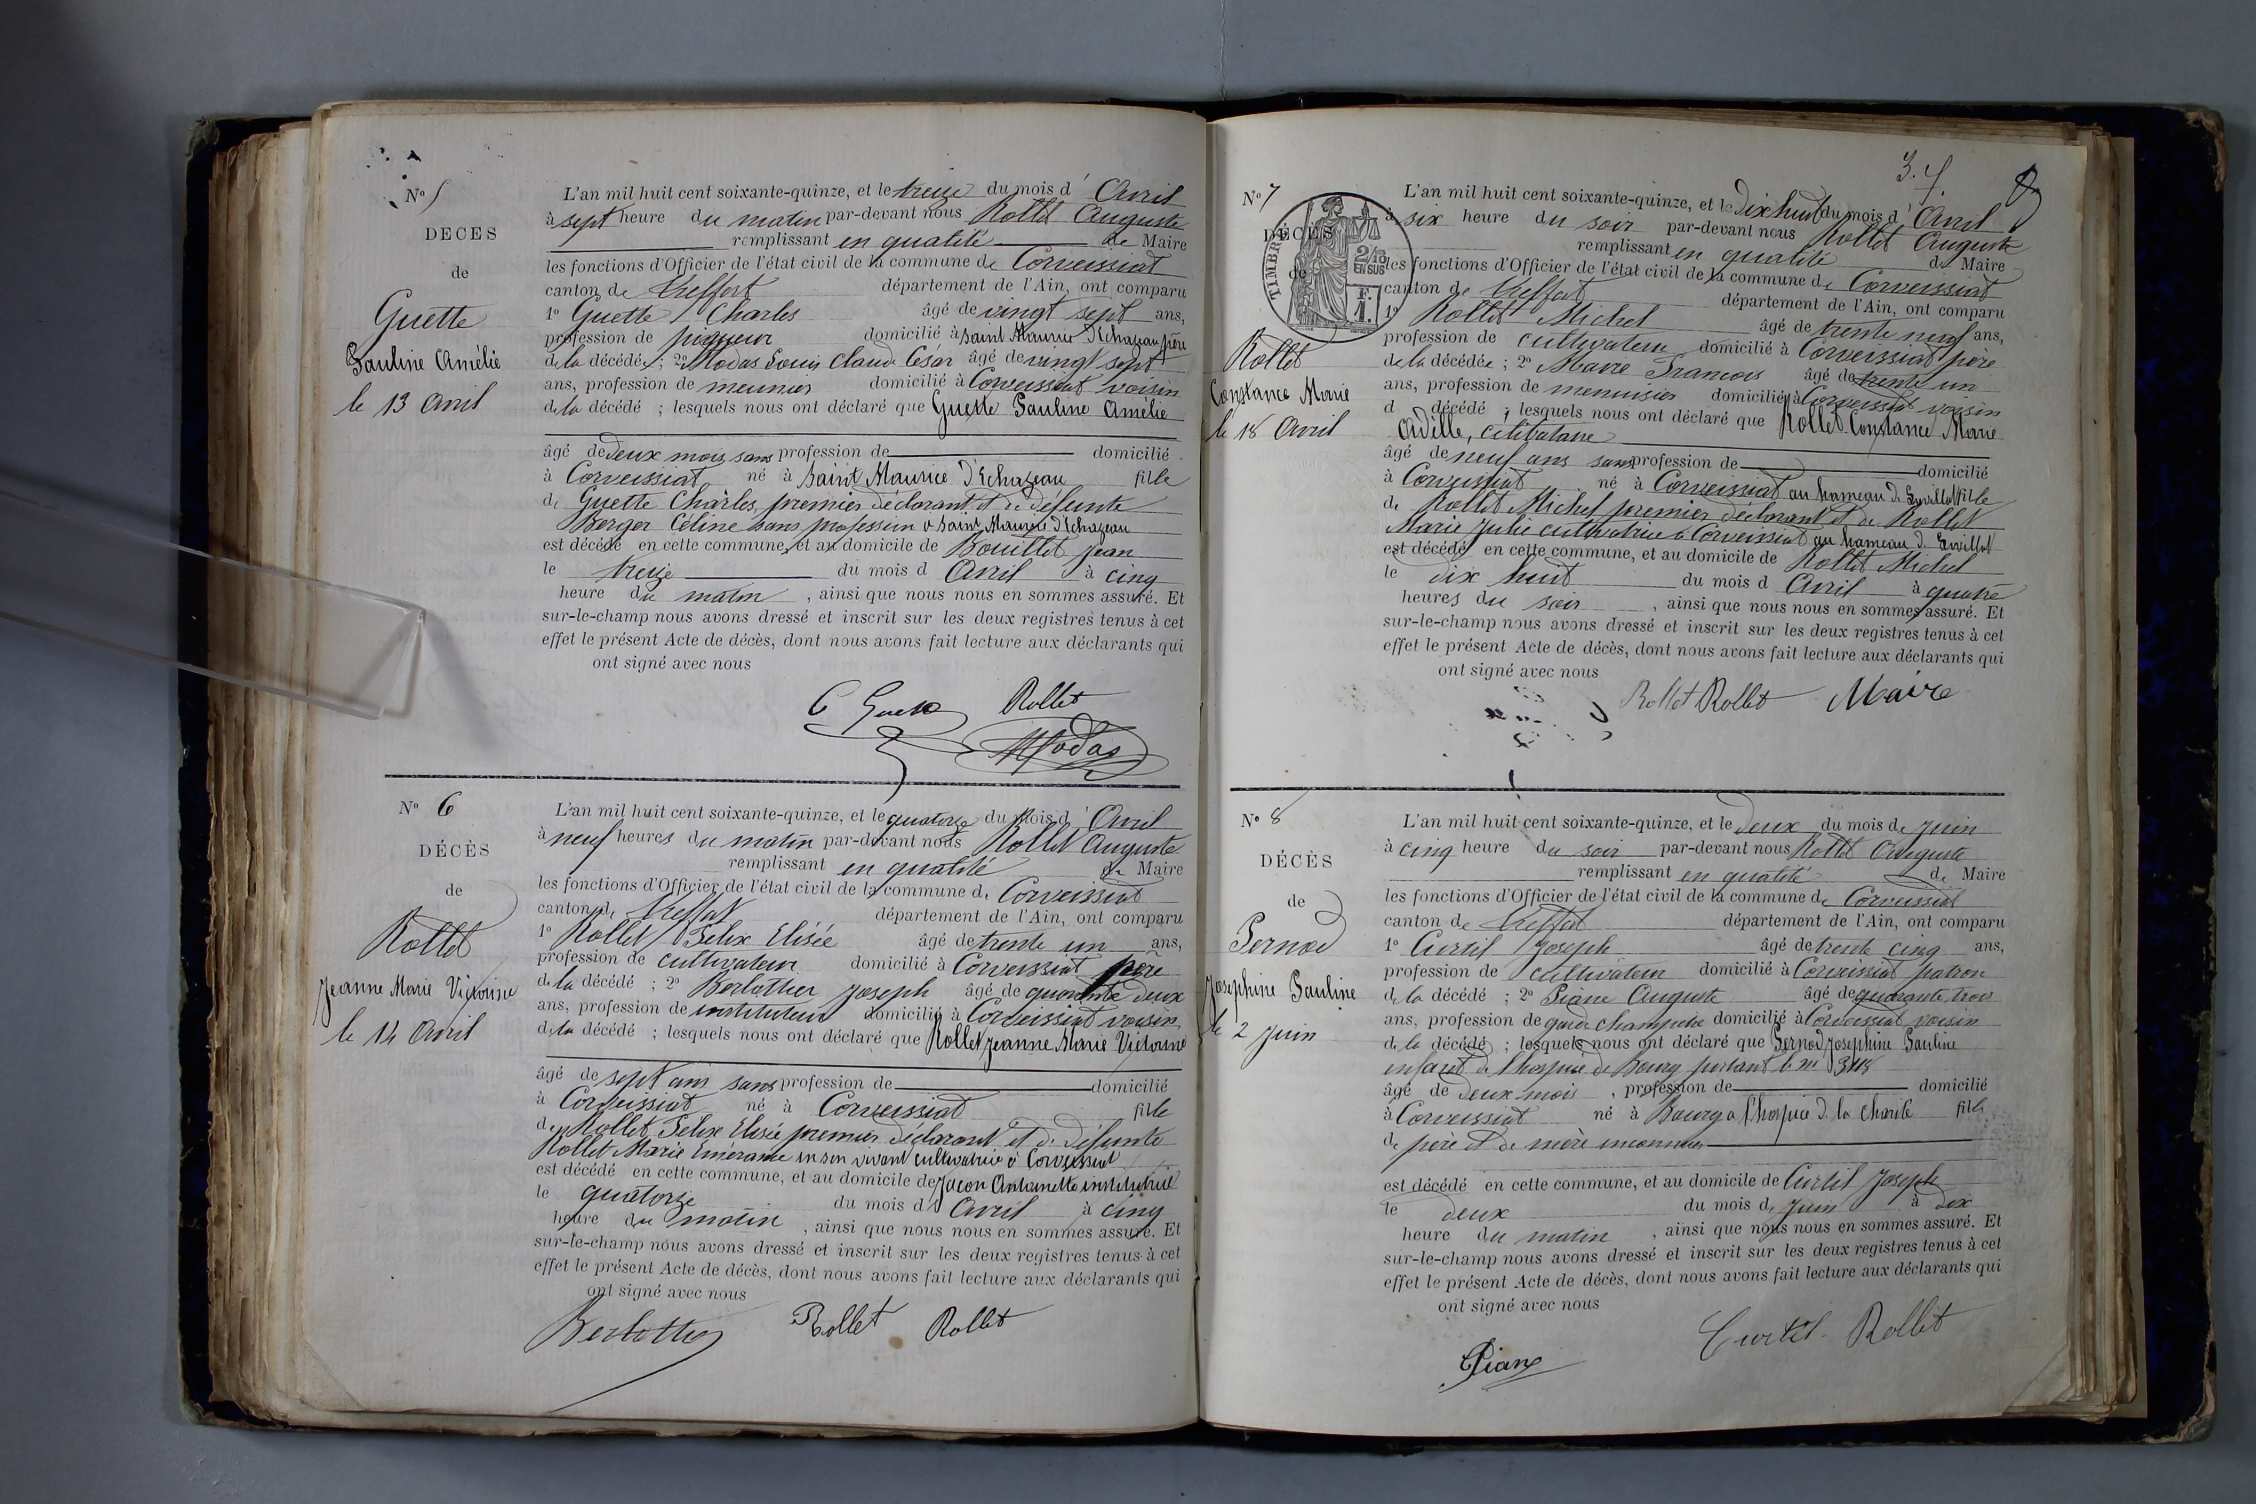 N° 5
DECES
de
Guette
Pauline Amélie
le 13 Avril
L'an mil huit cent soixante-quinze, et le treize du mois d' Avril
à sept heure du matin par-devant nous Rollet Auguste
remplissant en qualité de Maire
les fonctions d'Officier de l'état civil de la commune de Corveissiat
canton de Treffort département de l'Ain, ont comparu
1° Guette Charles âgé de vingt sept ans,
profession de piqueur domicilié à Saint Maurice D'Echazeau père
de la décédée ; 2° Modas Louis Claude César âgé de vingt sept
ans, profession de meunier domicilié à Corveissiat voisin
de la décédé ; lesquels nous ont déclaré que Guette Pauline Amélie
âgé de deux mois sans profession de domicilié
à Corveissiat né à Saint Maurice D'Echazeau fille
de Guette Charles, premier déclarant et de défunte
Berger Céline sans profession à Saint Maurice d'Echazeau
est décédé en cette commune, et au domicile de Bouillet Jean
le treize du mois d Avril à cinq
heure du matin , ainsi que nous nous en sommes assuré. Et
sur-le-champ nous avons dressé et inscrit sur les deux registres tenus à cet
effet le présent Acte de décès, dont nous avons fait lecture aux déclarants qui
ont signé avec nous
C Guette Rollet
Modas
N° 6
DÉCÈS
de
Rollet
Jeanne Marie Victorine
le 14 Avril
L'an mil huit cent soixante-quinze, et le quatorze du mois d' Avril
à neuf heures du matin par-devant nous Rollet Auguste
remplissant en qualité de Maire
les fonctions d'Officier de l'état civil de la commune de Corveissiat
canton de Treffort département de l'Ain, ont comparu
1° Rollet Felix Elisée âgé de trente un ans,
profession de cultivateur domicilié à Corveissiat père
de la décédé ; 2° Berlothier Joseph âgé de quarante deux
ans, profession de instituteur domicilié à Corveissiat voisin
de la décédé ; lesquels nous ont déclaré que Rollet Jeanne Marie Victorine
âgé de sept ans sans profession de domicilié
à Corveissiat né à Corveissiat fille
de Rollet Felix Elisée premier déclarant et de défunte
Rollet Marie Emérante en son vivant cultivatrice à Corveissiat
est décédé en cette commune, et au domicile de Jacon Antoinette institutrice
le quatorze du mois d' Avril à cinq
heure du matin , ainsi que nous nous en sommes assuré. Et
sur-le-champ nous avons dressé et inscrit sur les deux registres tenus à cet
effet le présent Acte de décès, dont nous avons fait lecture aux déclarants qui
ont signé avec nous
Berlothier Rollet Rollet
N° 7
TIMBRE
2/10 EN SUS
F. 1.
DÉCÈS
de
Rollet
Constance Marie
le 18 Avril
L'an mil huit cent soixante-quinze, et le Dix huit du mois d' Avril
à six heure du soir par-devant nous Rollet Auguste
remplissant en qualité de Maire
les fonctions d'Officier de l'état civil de la commune de Corveissiat
canton de Treffort département de l'Ain, ont comparu
1° Rollet Michel âgé de trente neuf ans,
profession de cultivateur domicilié à Corveissiat père
de la décédée ; 2° Maire Francois âgé de trente un
ans, profession de menuisier domicilié à Corveissiat voisin
d décédé ; lesquels nous ont déclaré que Rollet Constance Marie
Odille, célibataire
âgé de neuf ans sans profession de domicilié
à Corveissiat né à Corveissiat au hameau de fille
de Rollet Michel premier déclarant et de Rollet
Marie Julie cultivatrice à Corveissiat au hameau de
est décédé en cette commune, et au domicile de Rollet Michel
le dix huit du mois d Avril à quatre
heures du soir , ainsi que nous nous en sommes assuré. Et
sur-le-champ nous avons dressé et inscrit sur les deux registres tenus à cet
effet le présent Acte de décès, dont nous avons fait lecture aux déclarants qui
ont signé avec nous
Rollet Rollet Maire
N° 8
DÉCÈS
de
Pernod
Josephine Pauline
le 2 Juin
L'an mil huit cent soixante-quinze, et le Deux du mois de Juin
à cinq heure du soir par-devant nous Rollet Auguste
remplissant en qualité de Maire
les fonctions d'Officier de l'état civil de la commune de Corveissiat
canton de Treffort département de l'Ain, ont comparu
1° Curtil Joseph âgé de trente cinq ans,
profession de cultivateur domicilié à Corveissiat patron
de la décédé ; 2° Piane Auguste âgé de quarante trois
ans, profession de garde champetre domicilié à Corveissiat voisin
de la décédé ; lesquels nous ont déclaré que Pernod Josephine Pauline
enfant de l'hospice de Bourg portant le n°
âgé de deux mois , profession de domicilié
à Corveissiat né à Bourg à l'hospice de la charité fille
de père et de mère inconnus
est décédé en cette commune, et au domicile de Curtil Joseph
le deux du mois de Juin à dix
heure du matin , ainsi que nous nous en sommes assuré. Et
sur-le-champ nous avons dressé et inscrit sur les deux registres tenus à cet
effet le présent Acte de décès, dont nous avons fait lecture aux déclarants qui
ont signé avec nous
Curtil Rollet
Piane